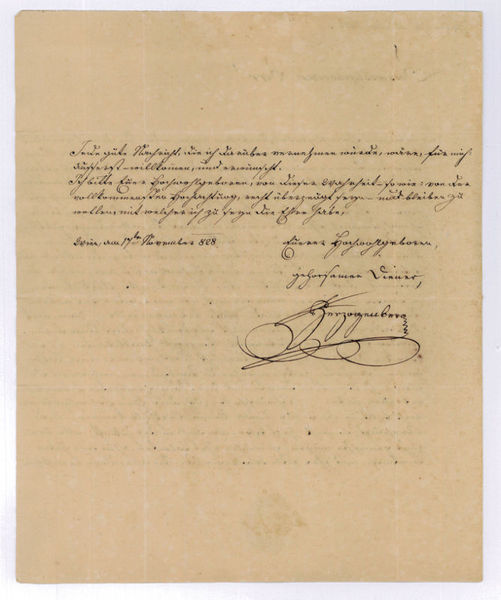 Jede gute Nachricht, die ich darüber vernehmen würde, wäre für mich
äusserst willkommen, und erwünscht.
Ich bitte Euer Hochwohlgeboren, von dieser Wahrheit so wie von der
vollkommensten Hochachtung, recht überzeugt seyn und bleiben zu
wollen, mit welcher ich zu seyn die Ehre habe,
Wien, am 17ten November 808
Euerer Hochwohlgeboren,
gehorsamer Diener,
Herzogenberg